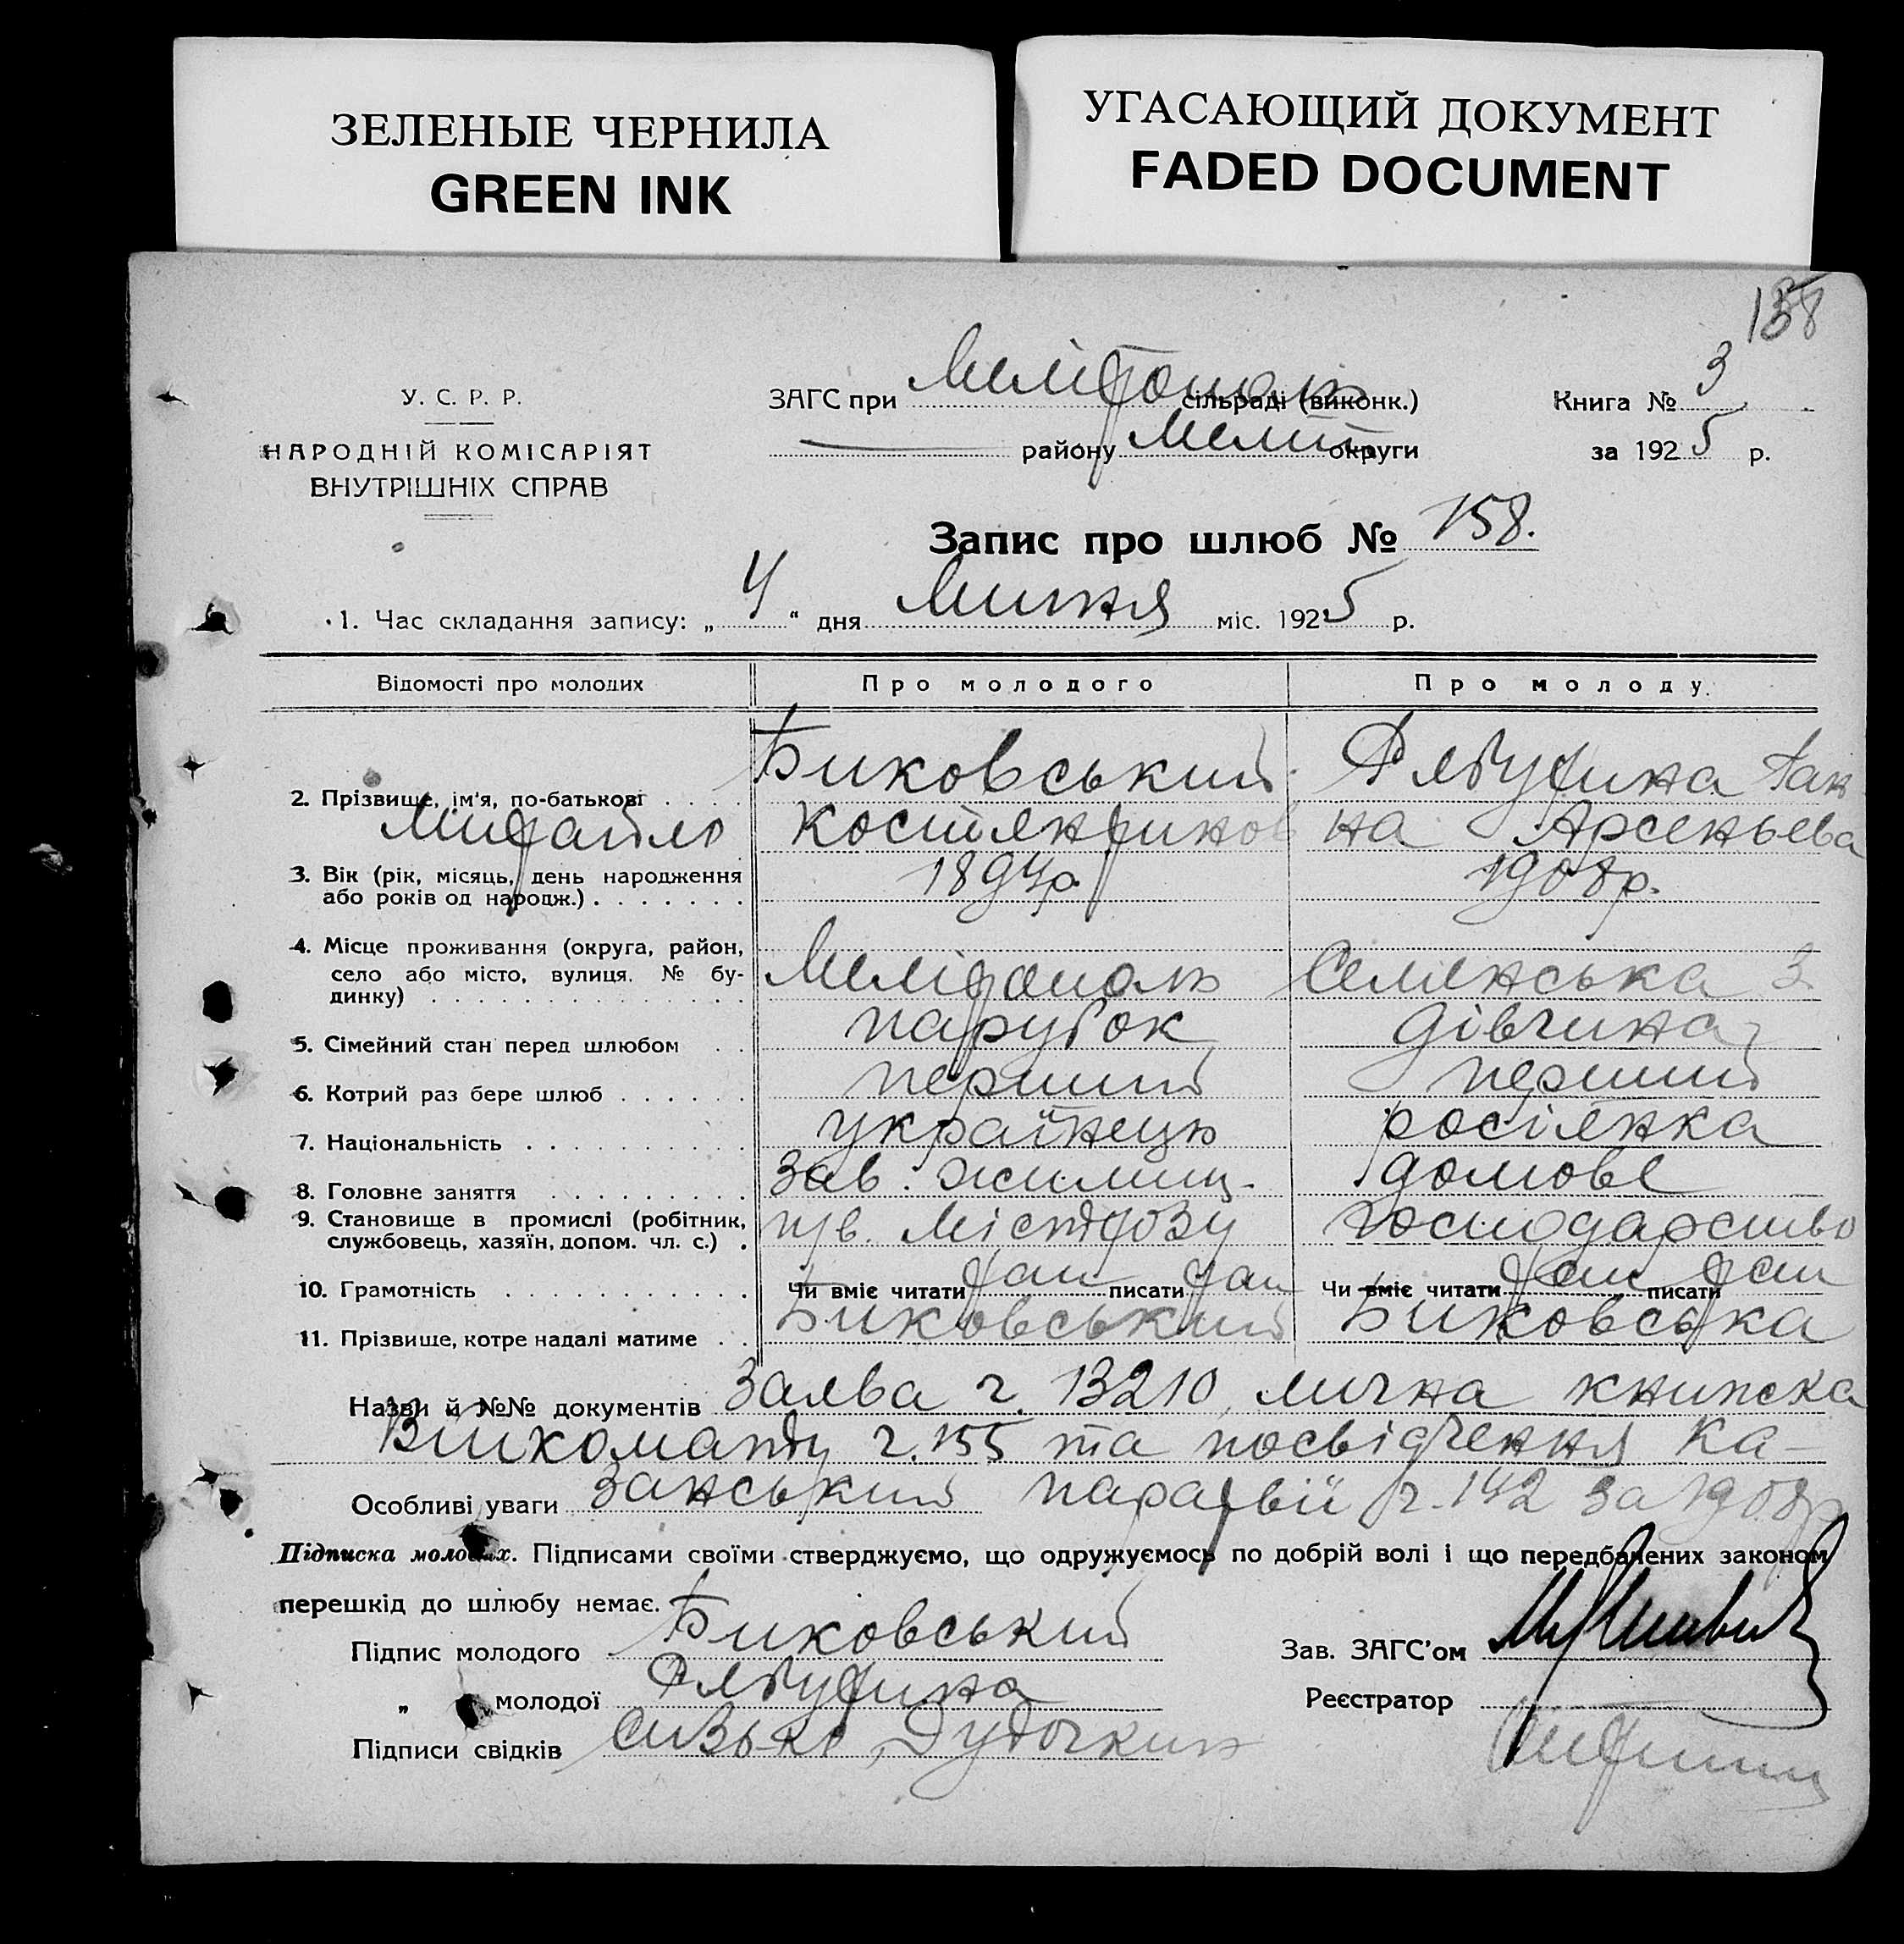 ЗЕЛЕНЫЕ ЧЕРНИЛА
GREEN INK
УГАСАЮЩИЙ ДОКУМЕНТ
FADED DOCUMENT
158
У. С. Р. Р.
НАРОДНІЙ КОМІСАРІЯТ
ВНУТРІШНІХ СПРАВ
ЗАГС при Мелітополь сільраді (виконк.)
району Меліт округи
Книга № 3
за 1925 р.
Запис про шлюб № 158.
1. Час складання запису: „ 4 “ дня Липня міс. 1925 р.
Відомості про молодих Про молодого Про молоду
2. Прізвище, ім'я, по-батькові Биковський Рябухина Ган
Михайло Костянтинов на Арсеньева
3. Вік (рік, місяць, день народження 1894р. 1908р.
або років од народж.)
4. Місце проживання (округа, район,
село або місто, вулиця. № бу- Мелітополь 3
динку)
5. Сімейний стан перед шлюбом парубок дівчина
6. Котрий раз бере шлюб перший перший
7. Національність українець росіянка
8. Головне заняття Зав. жилищ. домове
9. Становище в промислі (робітник, господарство
службовець, хазяїн, допом. чл. с.)
10. Грамотність Чи вміє читати так писати так Чи вміє читати так писати так
11. Прізвище, котре надалі матиме Биковський Биковська
Назви й №№ документів Заява ч. 13210, лична книжка
Військоманду ч. 155 та посвідчення Ка-
Особливі уваги занський парафії ч. 142 за 1908р
Підписка молодих. Підписами своїми стверджуємо, що одружуємось по добрій волі і що передбачених законом
перешкід до шлюбу немає.
Підпис молодого Биковський
Зав. ЗАГС'ом
„ молодої Рябухина
Реєстратор
Підписи свідків Сизько, Дудочкин